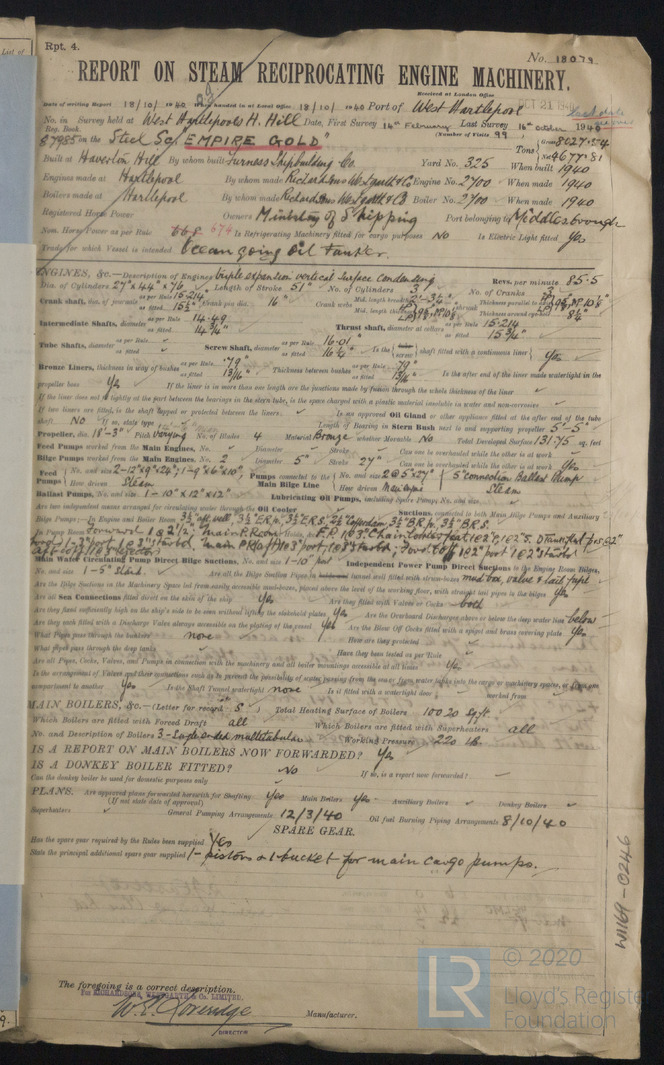 Rpt. 4.
No. 18079
REPORT ON STEAM RECIPROCATING ENGINE MACHINERY.
Received at London Office
OCT 21 1940
Date of writing Report 18/10/1940 When handed in at Local Office 18/10/1940 Port of West Hartlepool
No. in Survey held at West Hartlepool & H. Hill Date, First Survey 16th February Last Survey 16th October 1940
Reg. Book. (Number of Visits 99
87985 on the Steel Sc. "EMPIRE GOLD" Tons Gross 8027.54 Net 4677.81
Built at Haverton Hill By whom built Furness Shipbuilding Co. Yard No. 325 When built 1940
Engines made at Hartlepool By whom made Richardsons Westgarth & Co Engine No. 2700 When made 1940
Boilers made at Hartlepool By whom made Richardsons Westgarth & Co Boiler No. 2700 When made 1940
Registered Horse Power Owners Ministry of Shipping Port belonging to Middlesbrough
Nom. Horse Power as per Rule 668 674 Is Refrigerating Machinery fitted for cargo purposes No Is Electric Light fitted Yes
Trade for which Vessel is intended Ocean going Oil Tanker.
ENGINES, &c.—Description of Engines triple expansion vertical Surface Condensing Revs. per minute 85.5
Dia. of Cylinders 27" x 44" x 76 Length of Stroke 51" No. of Cylinders 3 No. of Cranks 3
Crank shaft, dia. of journals as per Rule 15.214 as fitted 15¾" Crank pin dia. 16" Crank webs
Intermediate Shafts, diameter as per Rule 14.49 as fitted 14¾" Thrust shaft, diameter at collars as per Rule 15.214 as fitted 15¾"
Tube Shafts, diameter Screw Shaft, diameter as per Rule 16.01" as fitted 16¼" Is the screw shaft fitted with a continuous liner Yes
Bronze Liners, thickness in way of bushes as per Rule .79" as fitted 13/16" Thickness between bushes as per Rule .79" as fitted 13/16" Is the after end of the liner made watertight in the
propeller boss Yes If the liner is in more than one length are the junctions made by fusion through the whole thickness of the liner
If the liner does not fit tightly at the part between the bearings in the stern tube, is the space charged with a plastic material insoluble in water and non-corrosive
If two liners are fitted, is the shaft lapped or protected between the liners Is an approved Oil Gland or other appliance fitted at the after end of the tube
shaft No If so, state type Length of Bearing in Stern Bush next to and supporting propeller 5'-5"
Propeller, dia. 18'-3" Pitch Varying No. of Blades 4 Material Bronze whether Moveable No Total Developed Surface 131.75 sq. feet
Feed Pumps worked from the Main Engines, No. Diameter Stroke Can one be overhauled while the other is at work
Bilge Pumps worked from the Main Engines, No. 2 Diameter 5" Stroke 27" Can one be overhauled while the other is at work Yes
Feed Pumps No. and size 2-12"x9"x24"; 1-9"x6"x10" How driven Steam Pumps connected to the Main Bilge Line No. and size 2 @ 5"x27" 5" connection Ballast Pump How driven Main Engine Steam
Ballast Pumps, No. and size 1-10"x12"x12" Lubricating Oil Pumps, including Spare Pump, No. and size
Are two independent means arranged for circulating water through the Oil Cooler Suctions, connected to both Main Bilge Pumps and Auxiliary
Bilge Pumps:—In Engine and Boiler Room
Main Water Circulating Pump Direct Bilge Suctions, No. and size 1-10" port Independent Power Pump Direct Suctions to the Engine Room Bilges,
No. and size 1-5" Stbd. Are all the Bilge Suction Pipes in holds and tunnel well fitted with strum-boxes mud box, valve & tail pipe
Are the Bilge Suctions in the Machinery Space led from easily accessible mud-boxes, placed above the level of the working floor, with straight tail pipes to the bilges Yes
Are all Sea Connections fitted direct on the skin of the ship Yes Are they fitted with Valves or Cocks both
Are they fixed sufficiently high on the ship's side to be seen without lifting the stokehold plates Yes Are the Overboard Discharges above or below the deep water line below
Are they each fitted with a Discharge Valve always accessible on the plating of the vessel Yes Are the Blow Off Cocks fitted with a spigot and brass covering plate Yes
What Pipes pass through the bunkers none How are they protected
What pipes pass through the deep tanks Have they been tested as per Rule
Are all Pipes, Cocks, Valves, and Pumps in connection with the machinery and all boiler mountings accessible at all times Yes
Is the arrangement of Valves and their connections such as to prevent the possibility of water passing from the sea or from water tanks into the cargo or machinery spaces, or from one
compartment to another Yes Is the Shaft Tunnel watertight none Is it fitted with a watertight door worked from
MAIN BOILERS, &c.—(Letter for record S ) Total Heating Surface of Boilers 10020 sq ft
Which Boilers are fitted with Forced Draft all Which Boilers are fitted with Superheaters all
No. and Description of Boilers 3-Single ended multitubular Working Pressure 220 lb.
IS A REPORT ON MAIN BOILERS NOW FORWARDED? Yes
IS A DONKEY BOILER FITTED? No If so, is a report now forwarded?
Can the donkey boiler be used for domestic purposes only
PLANS. Are approved plans forwarded herewith for Shafting Yes Main Boilers Yes Auxiliary Boilers Donkey Boilers
(If not state date of approval)
Superheaters General Pumping Arrangements 12/3/40 Oil fuel Burning Piping Arrangements 8/10/40
SPARE GEAR.
Has the spare gear required by the Rules been supplied Yes
State the principal additional spare gear supplied 1-pistons & 1-bucket for main cargo pumps.
W1169-0246
The foregoing is a correct description.
For RICHARDSONS, WESTGARTH & Co. LIMITED.
Manufacturer.
DIRECTOR
LR
© 2020
Lloyd's Register
Foundation